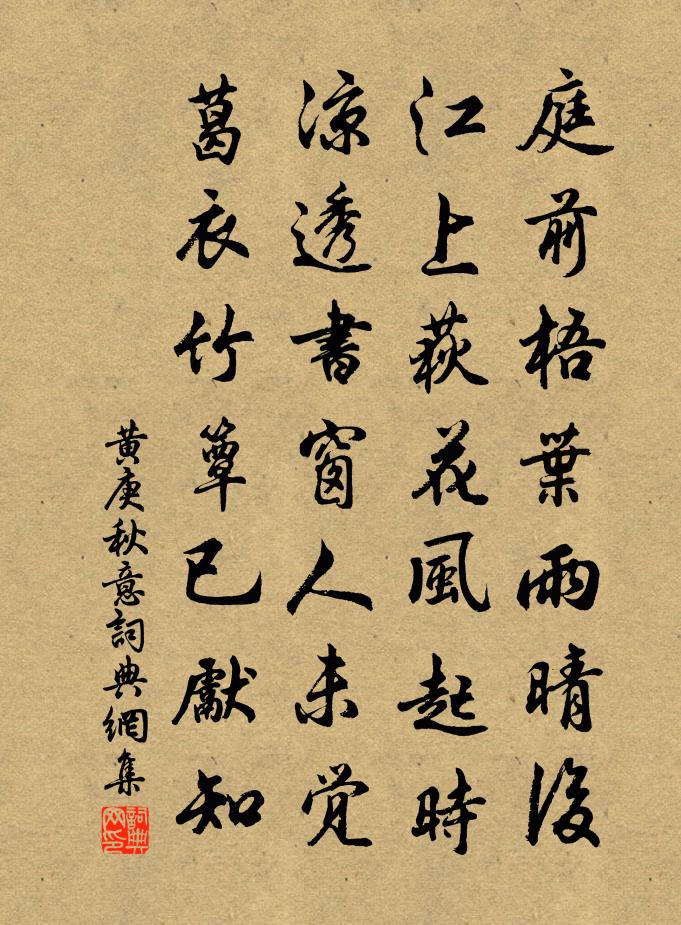 庭前梧葉雨晴後
江上荻花風起時
涼透書窗人未覚
葛衣竹簟已獻知
黄庚秋意詞典網集
詞典网印